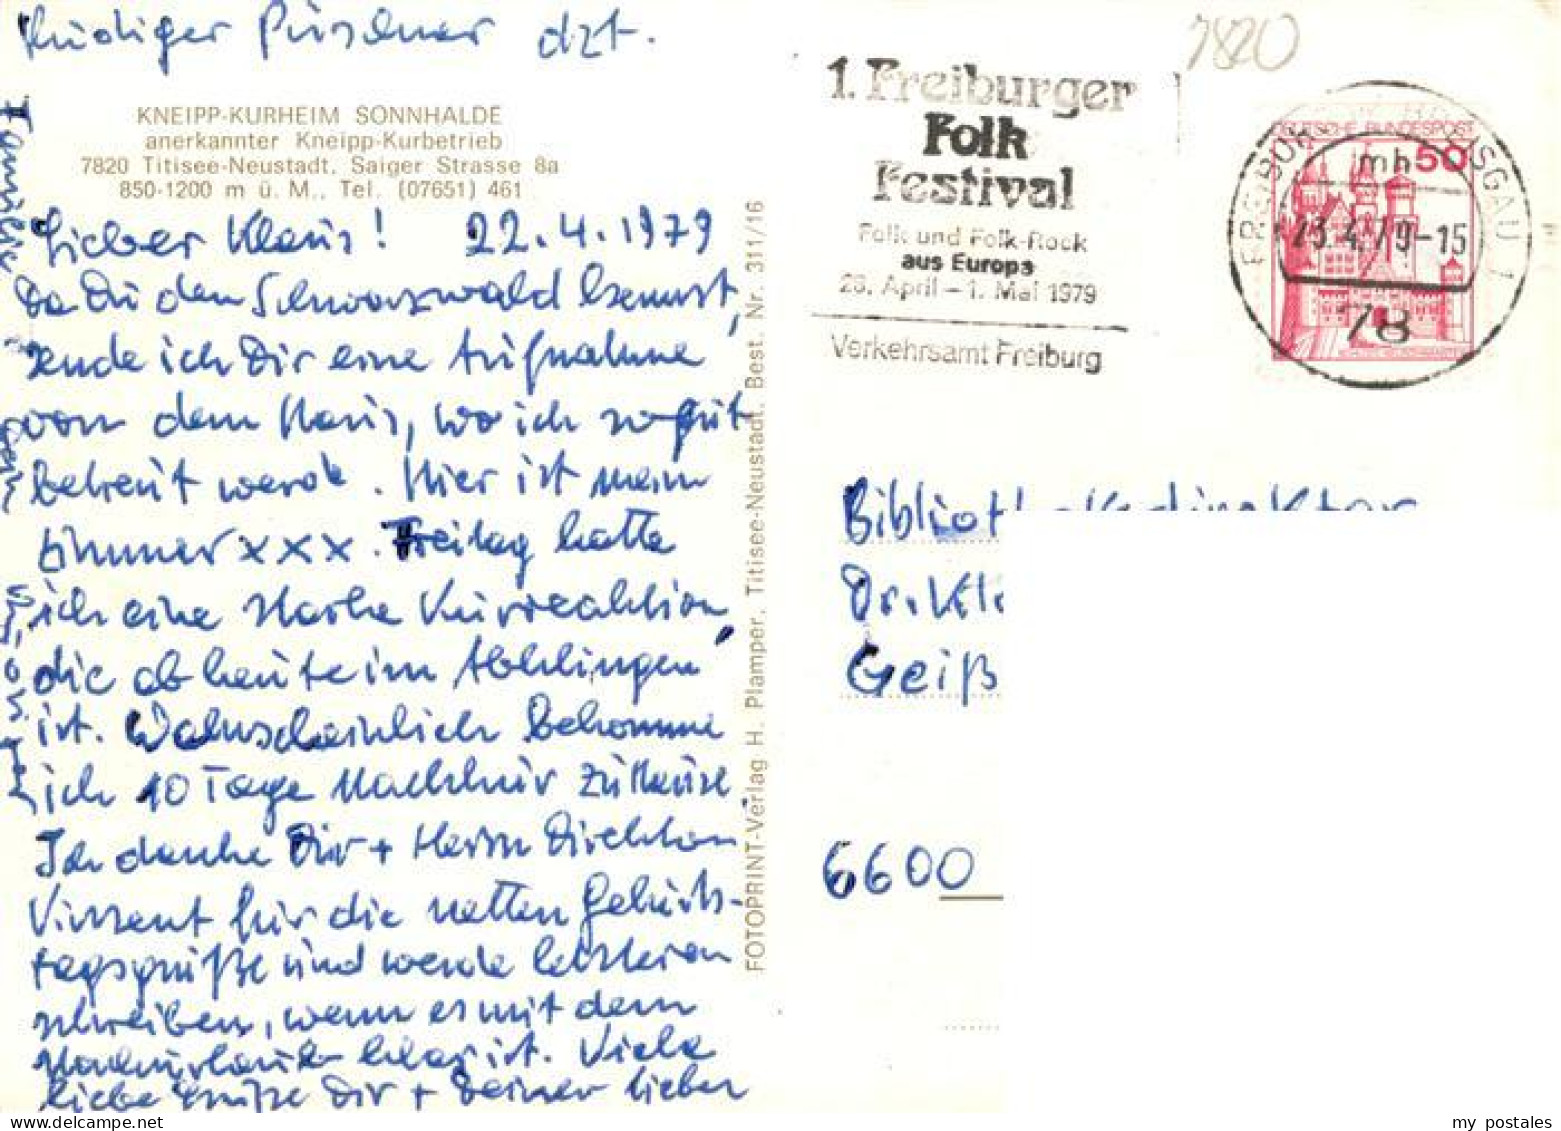 Rüdiger Püschner dzt.
KNEIPP-KURHEIM SONNHALDE
anerkannter Kneipp-Kurbetrieb
7820 Titisee-Neustadt, Saiger Strasse 8a
850-1200 m ü. M., Tel. (07651) 461
Lieber Klaus! 22.4.1979
Da Du den Schwarzwald kennst,
sende ich Dir eine Aufnahme
von dem Haus, wo ich so gut
betreut werde. Hier ist mein
Zimmer xxx. Freitag hatte
ich eine starke Kurreaktion,
die ab heute im Abklingen
ist. Wahrscheinlich bekomme
ich 10 Tage Nachkur zuhause.
Ich danke Dir + Herrn Direktor
Vinzent für die netten Geburts-
tagsgrüße und werde letzteren
schreiben, wenn es mit dem
Nachurlaub klar ist. Viele
liebe Grüße Dir + Deiner lieben
Familie
FOTOPRINT-Verlag H. Plamper, Titisee-Neustadt, Best. Nr. 311/16
7820
1. Freiburger
Folk
Festival
Folk und Folk-Rock
aus Europa
28. April - 1. Mai 1979
Verkehrsamt Freiburg
DEUTSCHE BUNDESPOST
50
FREIBURG IM BREISGAU 1
mh
23.4.79-15
78
Bibliotheksdirektor
Dr. Kl
Geiß
6600
my postales